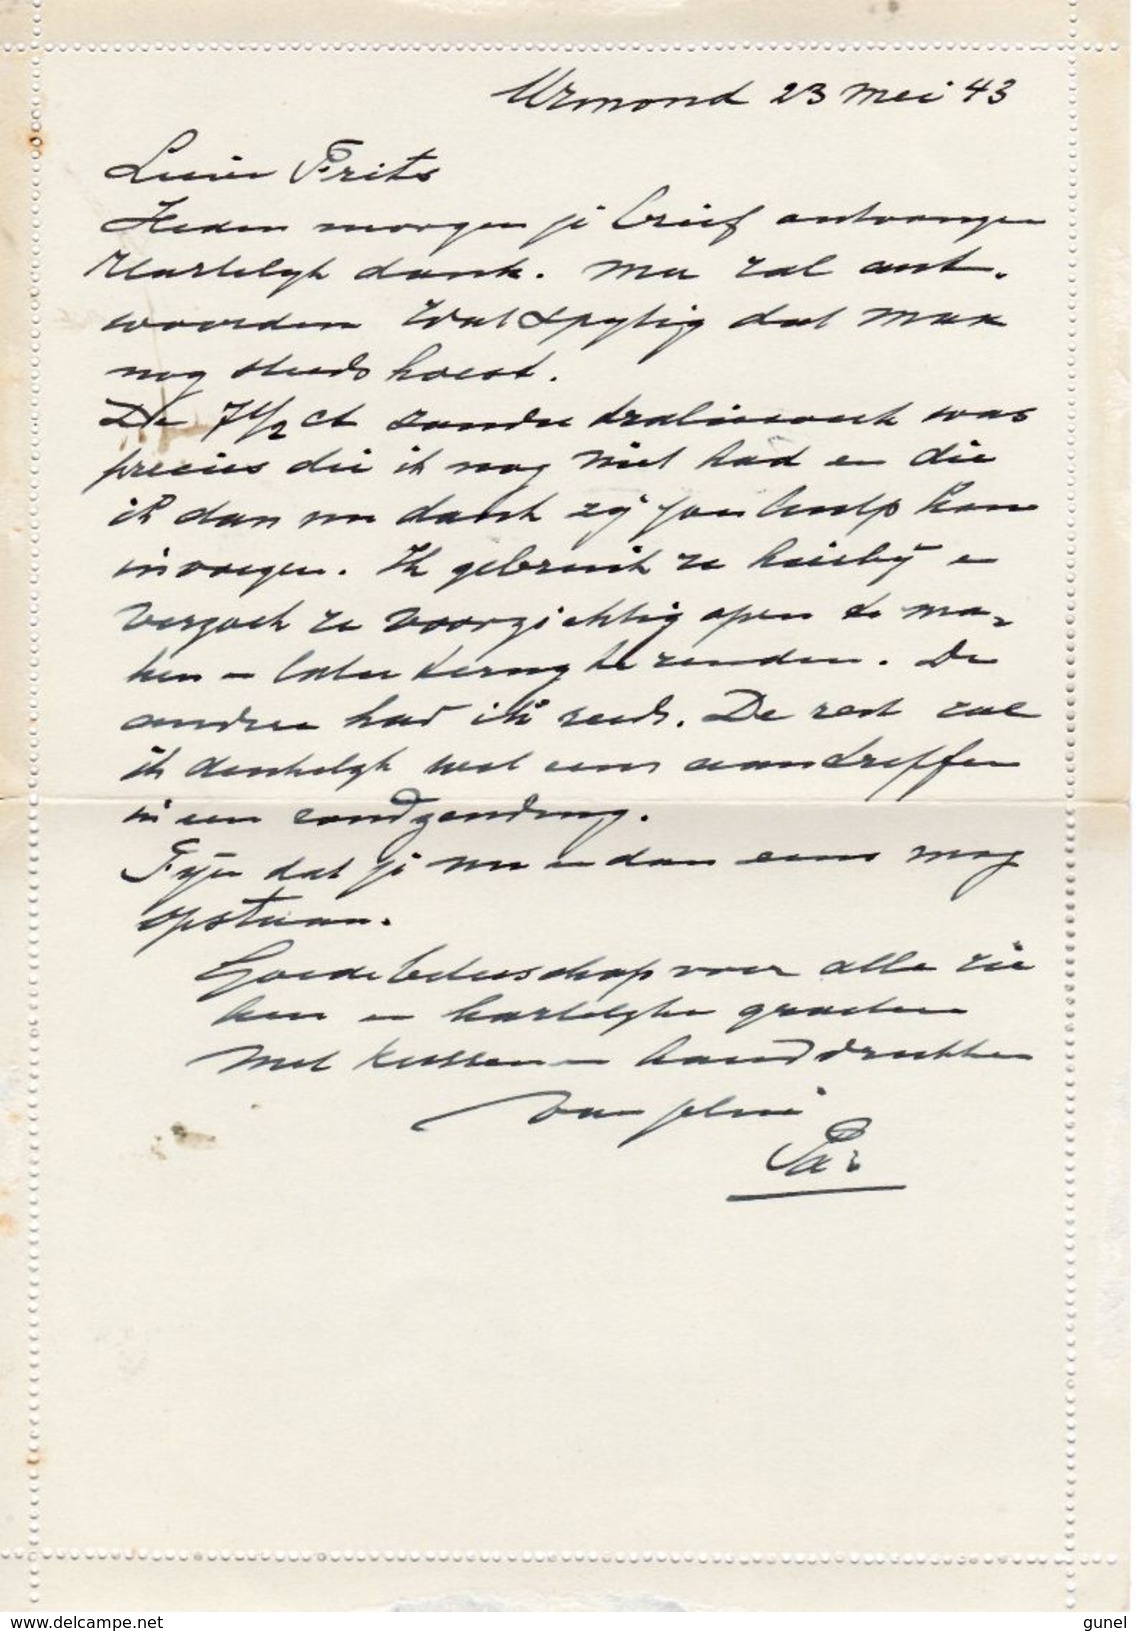 Urmond 23 Mei 43
Liever Frits
Heden morgen je brief ontvangen
Hartelijk dank. Moe zal ant-
woorden Wat spijtig dat Max
nog steeds hoest.
De 7 1/2 ct zonder traliewerk was
precies die ik nog niet had en die
ik dan nu dank zij jou hulp kan
invoegen. Ik gebruik ze hierbij en
verzoek ze voorzichtig open te ma-
ken en later terug te zenden. De
andere had ik reeds. De rest zal
ik denkelijk wel eens aantreffen
in een rondzending.
Fijn dat je nu en dan eens mag
opstaan.
Goede beterschap voor alle zie
ken en hartelijke groeten
Met kussen en handdrukken
van jelui
Pa
gunel
delcampe.net